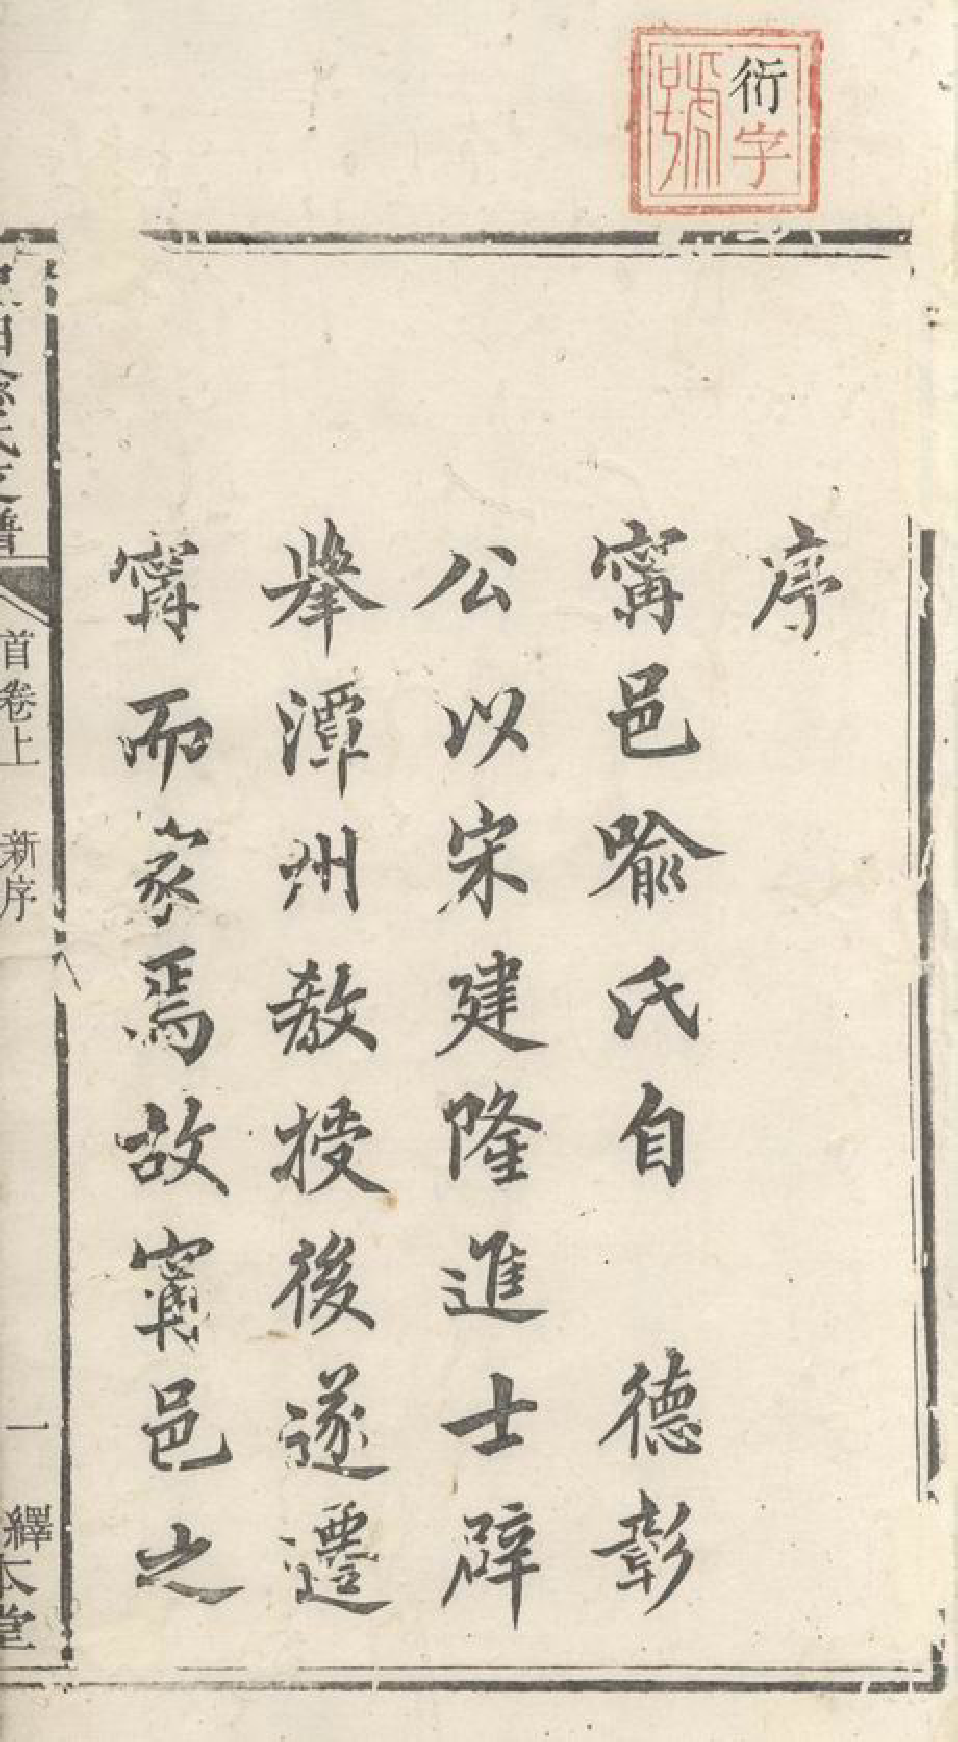 衍字號
序
甯邑喻氏自 德彰
公以宋建隆進士辟
舉潭州教授後遂遷
甯而家焉故甯邑之
氏支譜
首卷上 新序
一
繹本堂